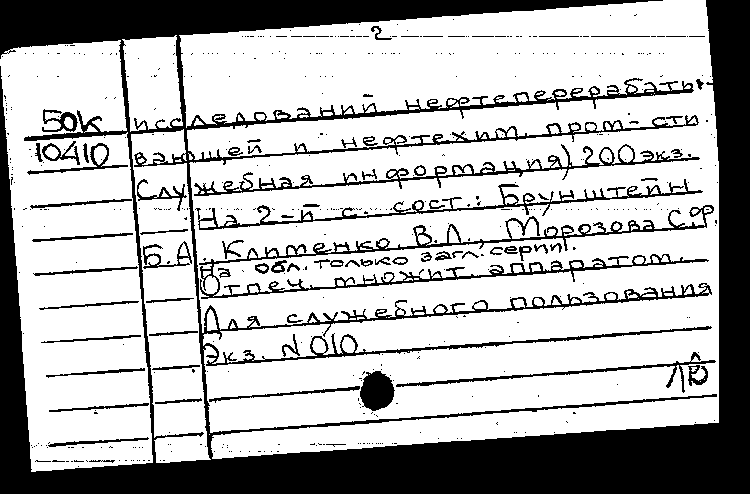 2
50к исследований нефтеперерабаты-
10410 вающей и нефтехим. пром-сти.
Служебная информация) 200 экз.
На 2-й с. сост.: Брунштейн
Б.А., Клименко В.Л., Морозова С.Ф.
На обл. только загл. серии.
Отпеч. множит. аппаратом.
Для служебного пользования
Экз. N 010.